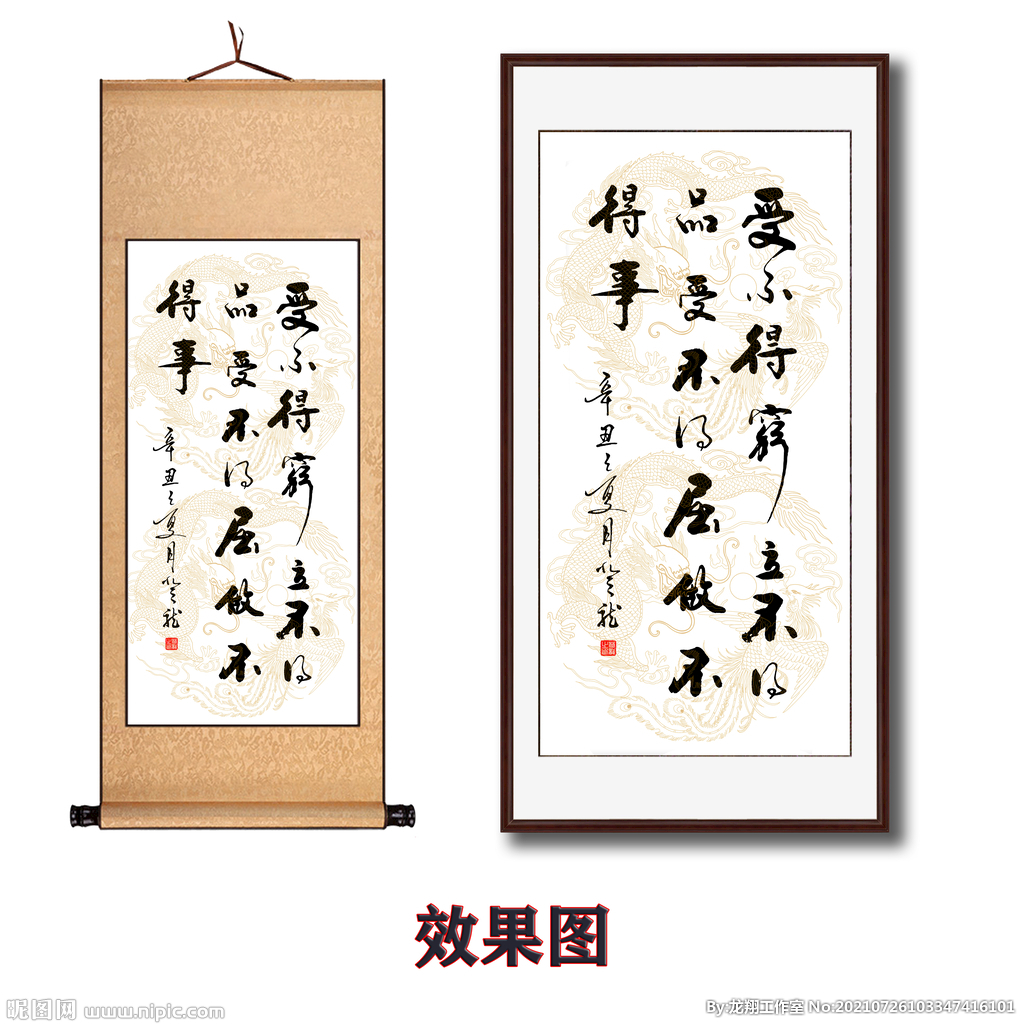 受不得窮立不得
品受不得屈做不
得事
辛丑之夏月
受不得窮立不得
品受不得屈做不
得事
辛丑之夏月
效果图
昵图网 www.nipic.com
By:龙翔工作室 No:20210726103347416101